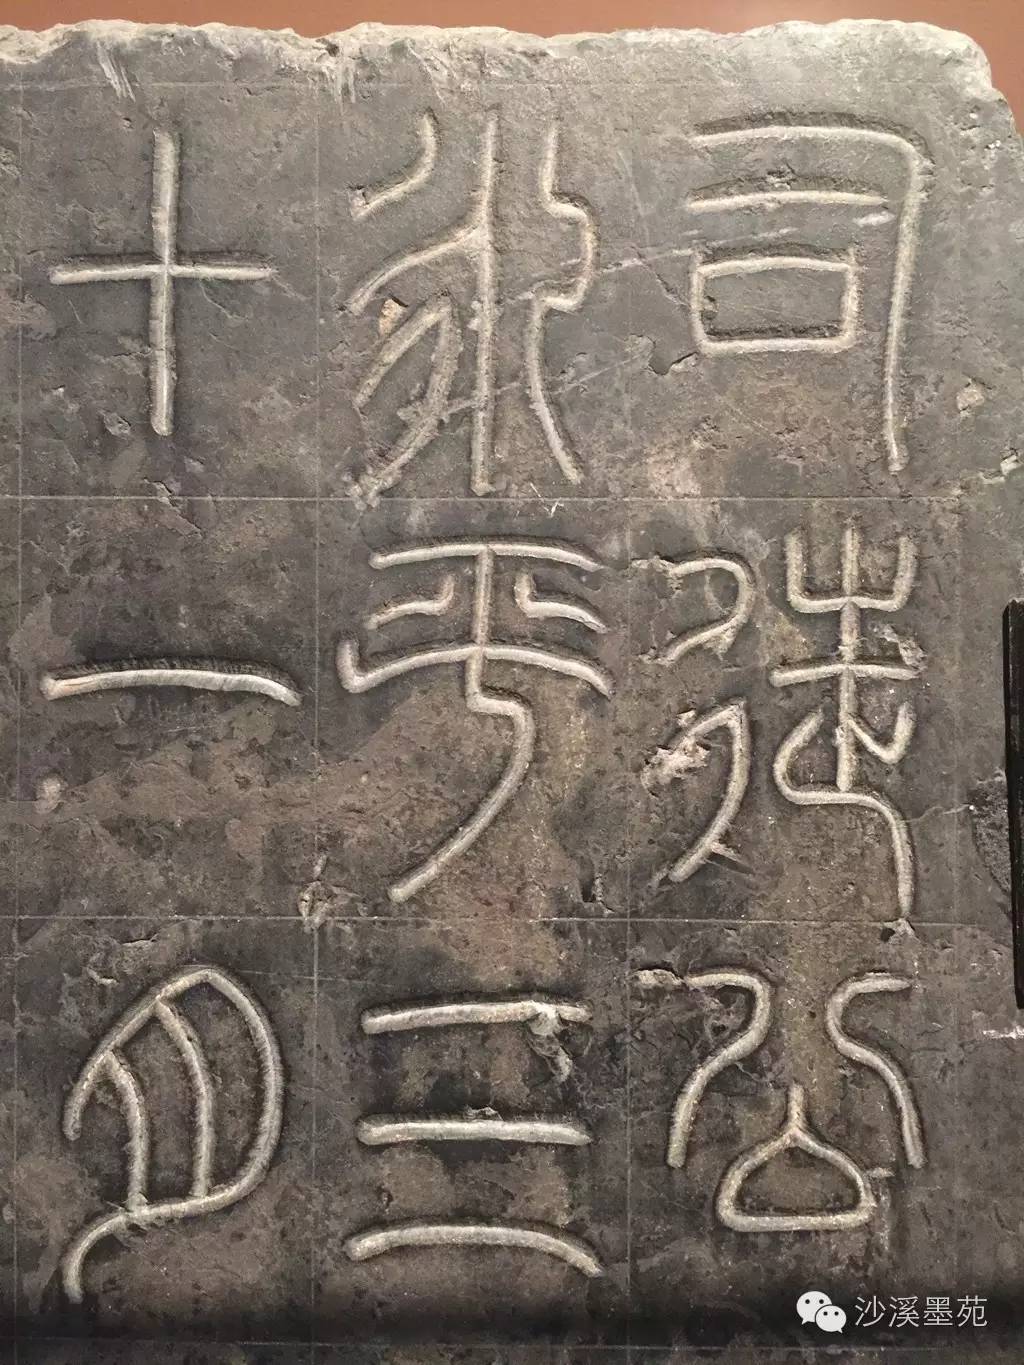 司徒公
永平三
十一月
沙溪墨苑